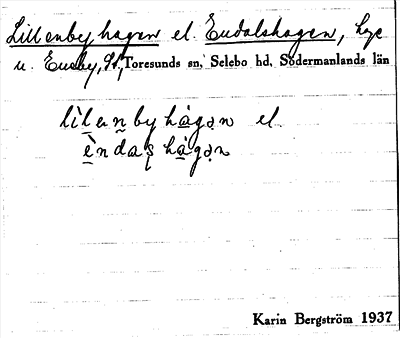 Lillenbyhagen el. Endalshagen, lge
u. Enby, St, Toresunds sn, Selebo hd, Södermanlands län
lìlenbyhàgən el.
èndaʂhàgən
Karin Bergström 1937